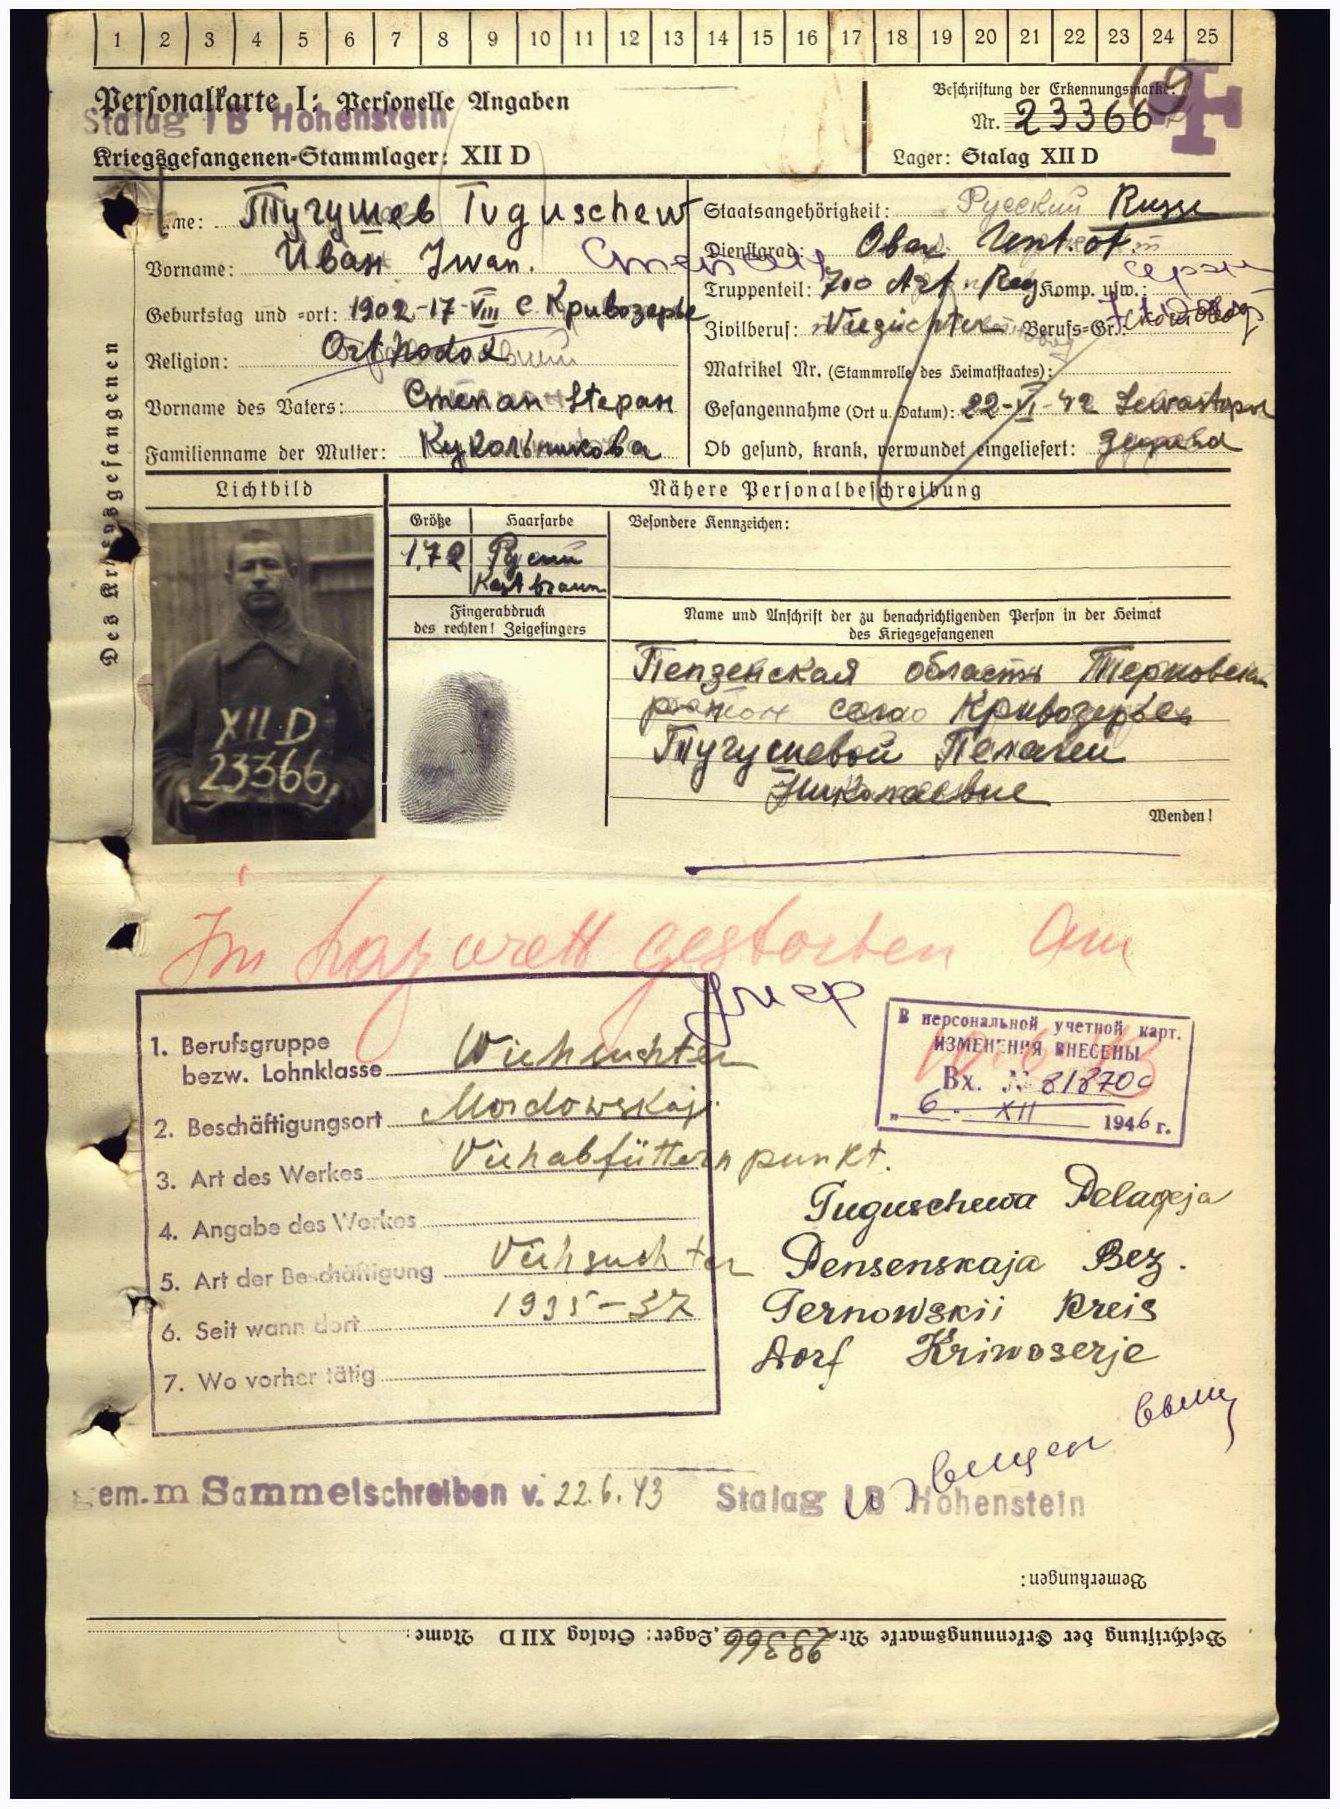 1 2 3 4 5 6 7 8 9 10 11 12 13 14 15 16 17 18 19 20 21 22 23 24 25
Personalkarte I: Personelle Angaben
Stalag I B Hohenstein
Kriegsgefangenen-Stammlager: XII D
Beschriftung der Erkennungsmarke:
Nr. 23366
Lager: Stalag XII D
Des Kriegsgefangenen
me: Тугушев Tuguschew
Vorname: Иван Iwan. Степан
Geburtstag und -ort: 1902-17-VIII с. Кривозерье
Religion: Orthodox
Vorname des Vaters: Степан Stepan
Familienname der Mutter: Кукольникова
Staatsangehörigkeit: Русский Russe
Dienstgrad:
Truppenteil: 700 Art. Reg Komp. usw.:
Zivilberuf: Viezüchter Berufs-Gr.:
Matrikel Nr. (Stammrolle des Heimatstaates):
Gefangennahme (Ort u. Datum): 22-VI-42 Sewastopol
Ob gesund, krank, verwundet eingeliefert:
Lichtbild
Nähere Personalbeschreibung
Größe Haarfarbe
1,72 Русый
braun
Besondere Kennzeichen:
Fingerabdruck
des rechten! Zeigefingers
Name und Anschrift der zu benachrichtigenden Person in der Heimat
des Kriegsgefangenen
Пензенская область Терновский
район село Кривозерье
Тугушевой Пелагеи
Николаевне
Wenden!
XII D
23366
Im Lazarett gestorben am
умер
1. Berufsgruppe
bezw. Lohnklasse Viehsuchter
2. Beschäftigungsort Mordowskaj
3. Art des Werkes Viehabfüttern punkt.
4. Angabe des Werkes
5. Art der Beschäftigung Viehsuchter
6. Seit wann dort 1935-37
7. Wo vorher tätig
В персональной учетной карт.
ИЗМЕНЕНИЯ ВНЕСЕНЫ
Вх. № 81870с
„6 XII 1946 г.
Tuguschewa Pelageja
Pensenskaja Bez.
Ternowskii Kreis
Dorf Kriwoserje
gem. m Sammelschreiben v. 22.6.43
Stalag I B Hohenstein
Bemerkungen:
Beschriftung der Erkennungsmarke Nr. 23366, Lager: Stalag XII D Name: